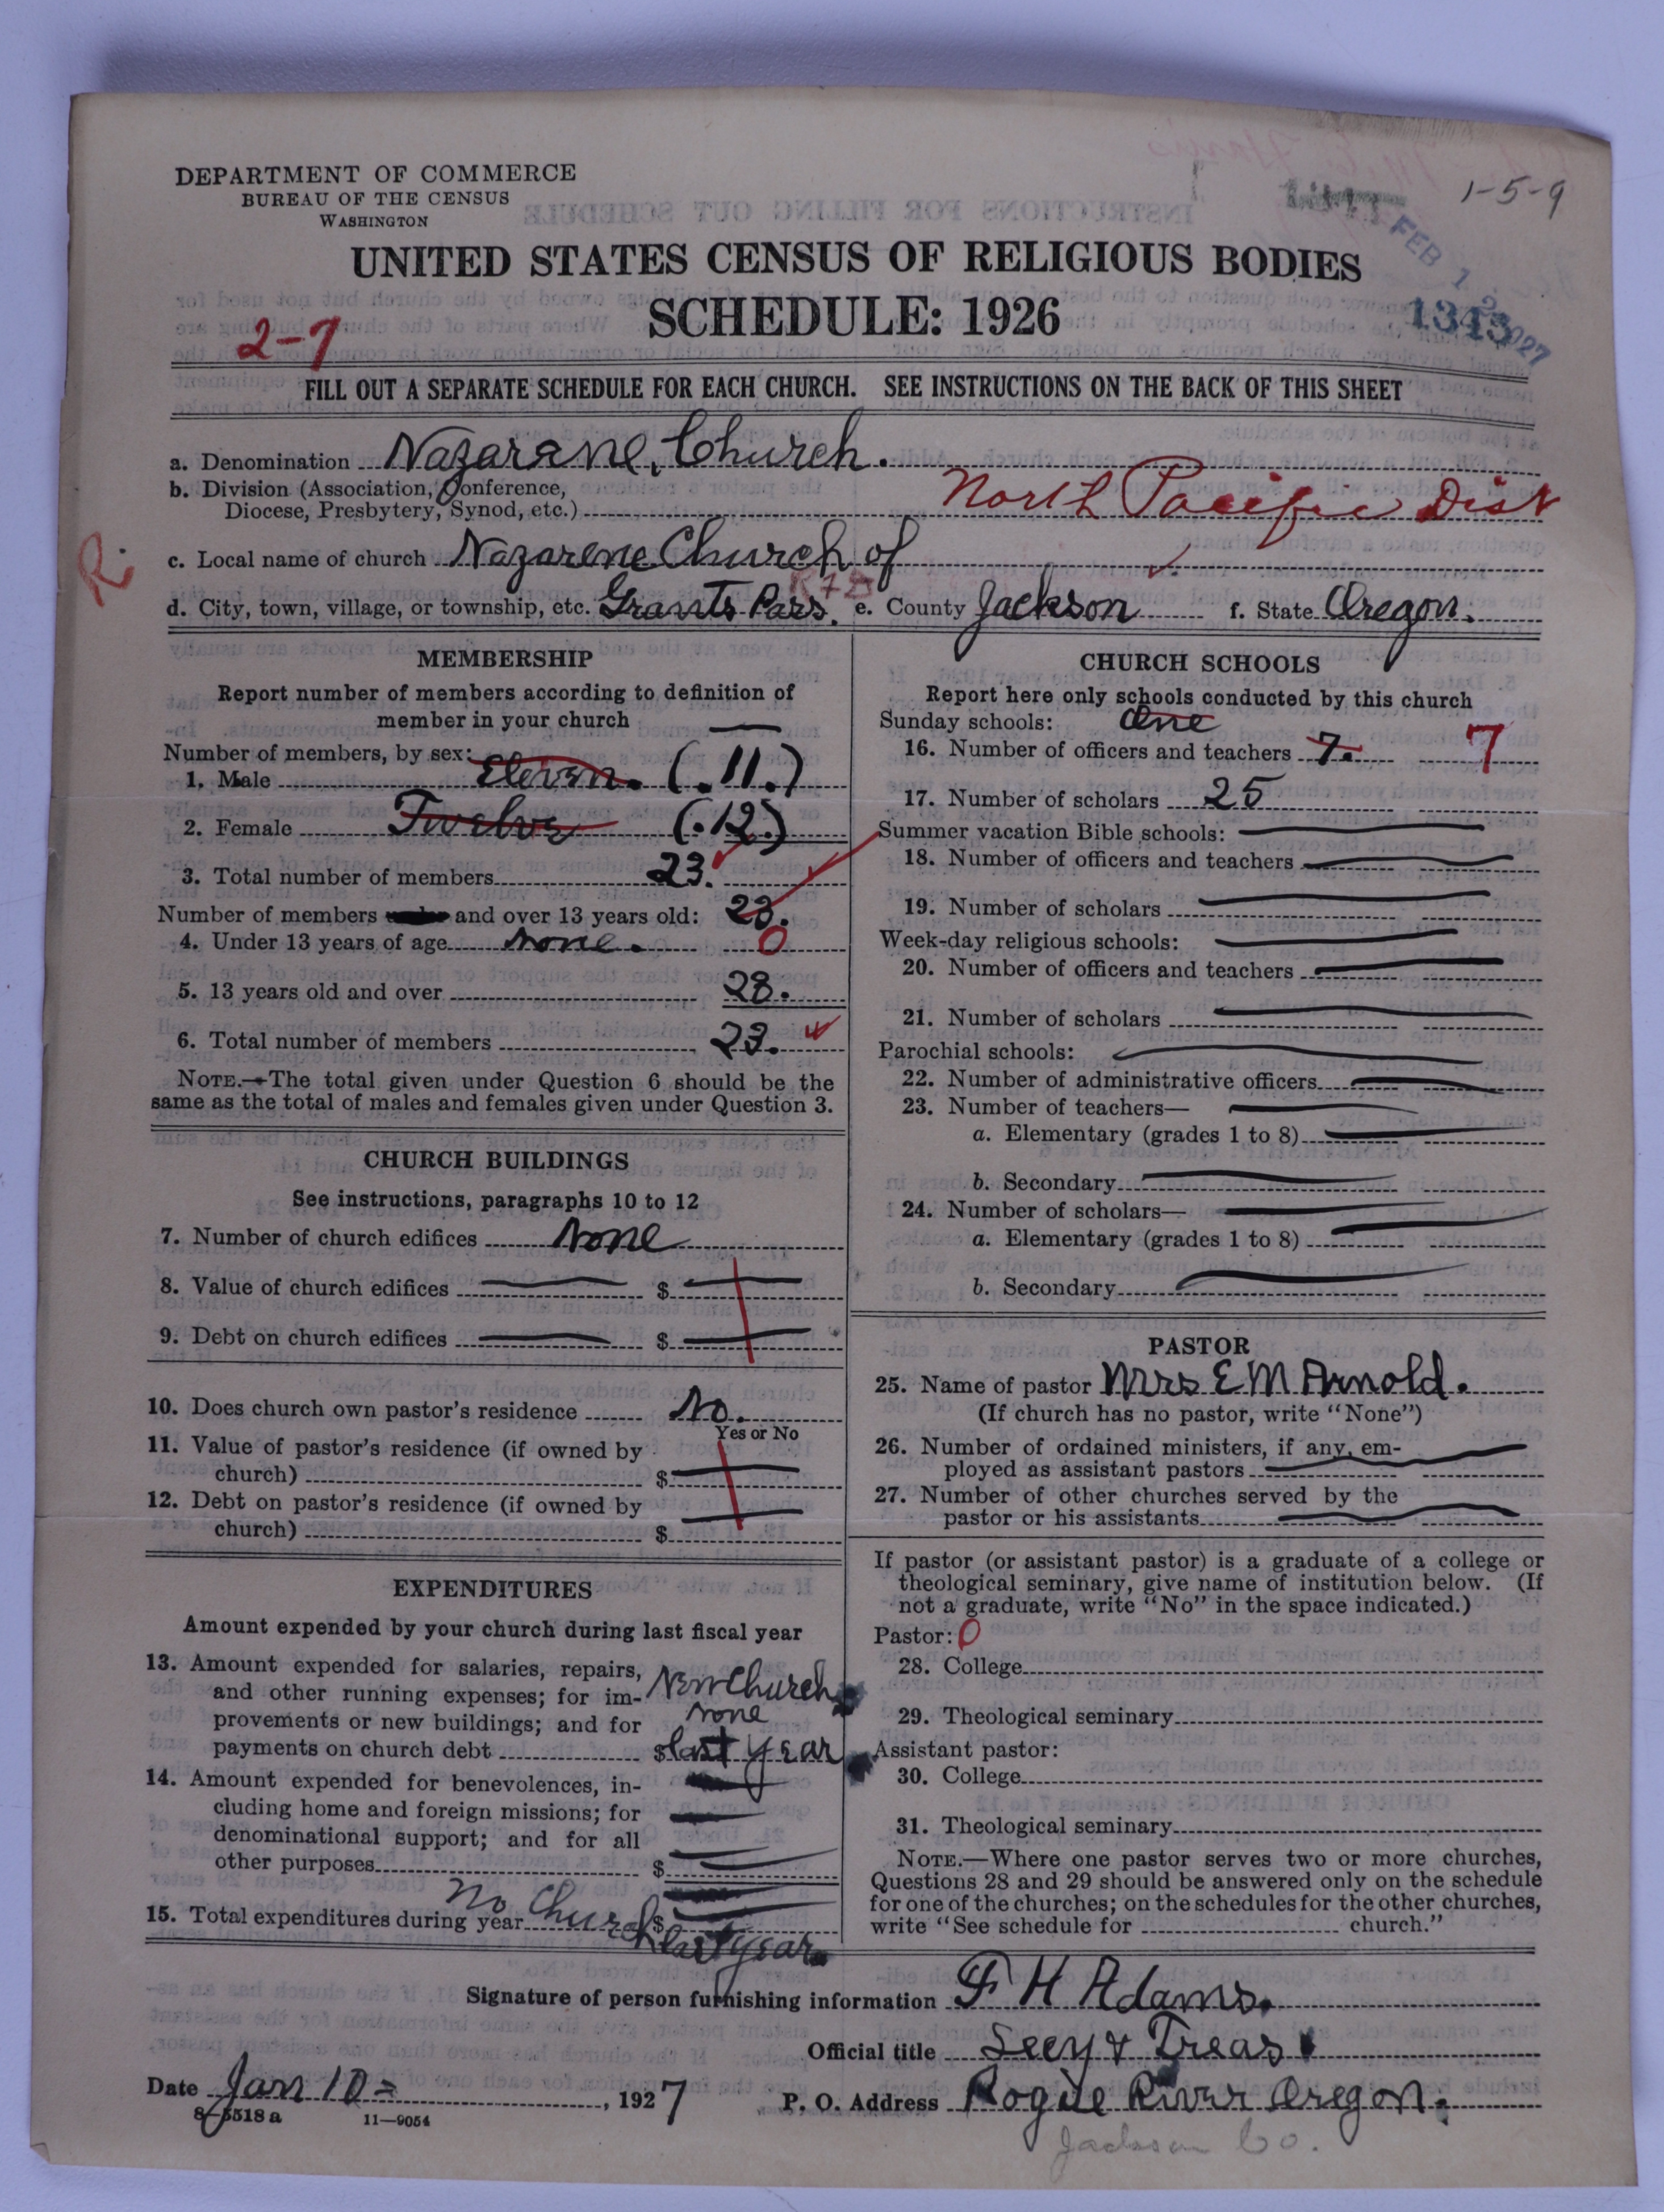 1-5-9
DEPARTMENT OF COMMERCE
BUREAU OF THE CENSUS
WASHINGTON
FEB 1 2 1927
UNITED STATES CENSUS OF RELIGIOUS BODIES
SCHEDULE: 1926
1343
2-7
FILL OUT A SEPARATE SCHEDULE FOR EACH CHURCH. SEE INSTRUCTIONS ON THE BACK OF THIS SHEET
a. Denomination Nazarane, Church.
b. Division (Association, Conference,
Diocese, Presbytery, Synod, etc.) North Pacific Dist
R.
c. Local name of church Nazarene Church of
d. City, town, village, or township, etc. Grants Pass. e. County Jackson f. State Oregon.
MEMBERSHIP
Report number of members according to definition of
member in your church
Number of members, by sex:
1. Male Eleven. (.11.)
2. Female Twelve (.12.)
3. Total number of members 23.
Number of members and over 13 years old: 23.
4. Under 13 years of age none. 0
5. 13 years old and over 23.
6. Total number of members 23.
NOTE.—The total given under Question 6 should be the
same as the total of males and females given under Question 3.
CHURCH BUILDINGS
See instructions, paragraphs 10 to 12
7. Number of church edifices None
8. Value of church edifices $
9. Debt on church edifices $
10. Does church own pastor's residence No.
Yes or No
11. Value of pastor's residence (if owned by
church) $
12. Debt on pastor's residence (if owned by
church) $
EXPENDITURES
Amount expended by your church during last fiscal year
13. Amount expended for salaries, repairs,
and other running expenses; for im- New Church
provements or new buildings; and for none
payments on church debt $ last year
14. Amount expended for benevolences, in-
cluding home and foreign missions; for
denominational support; and for all
other purposes $
15. Total expenditures during year $ No Church last year
CHURCH SCHOOLS
Report here only schools conducted by this church
Sunday schools: One
16. Number of officers and teachers 7. 7
17. Number of scholars 25
Summer vacation Bible schools:
18. Number of officers and teachers
19. Number of scholars
Week-day religious schools:
20. Number of officers and teachers
21. Number of scholars
Parochial schools:
22. Number of administrative officers
23. Number of teachers—
a. Elementary (grades 1 to 8)
b. Secondary
24. Number of scholars—
a. Elementary (grades 1 to 8)
b. Secondary
PASTOR
25. Name of pastor Mrs E M Arnold.
(If church has no pastor, write "None")
26. Number of ordained ministers, if any, em-
ployed as assistant pastors
27. Number of other churches served by the
pastor or his assistants
If pastor (or assistant pastor) is a graduate of a college or
theological seminary, give name of institution below. (If
not a graduate, write "No" in the space indicated.)
Pastor: 0
28. College
29. Theological seminary
Assistant pastor:
30. College
31. Theological seminary
NOTE.—Where one pastor serves two or more churches,
Questions 28 and 29 should be answered only on the schedule
for one of the churches; on the schedules for the other churches,
write "See schedule for church."
Signature of person furnishing information F H Adams.
Official title Secy & Treas
Date Jan 10 =, 1927 P. O. Address Rogue River Oregon.
8-5518 a 11-9054
Jackson Co.